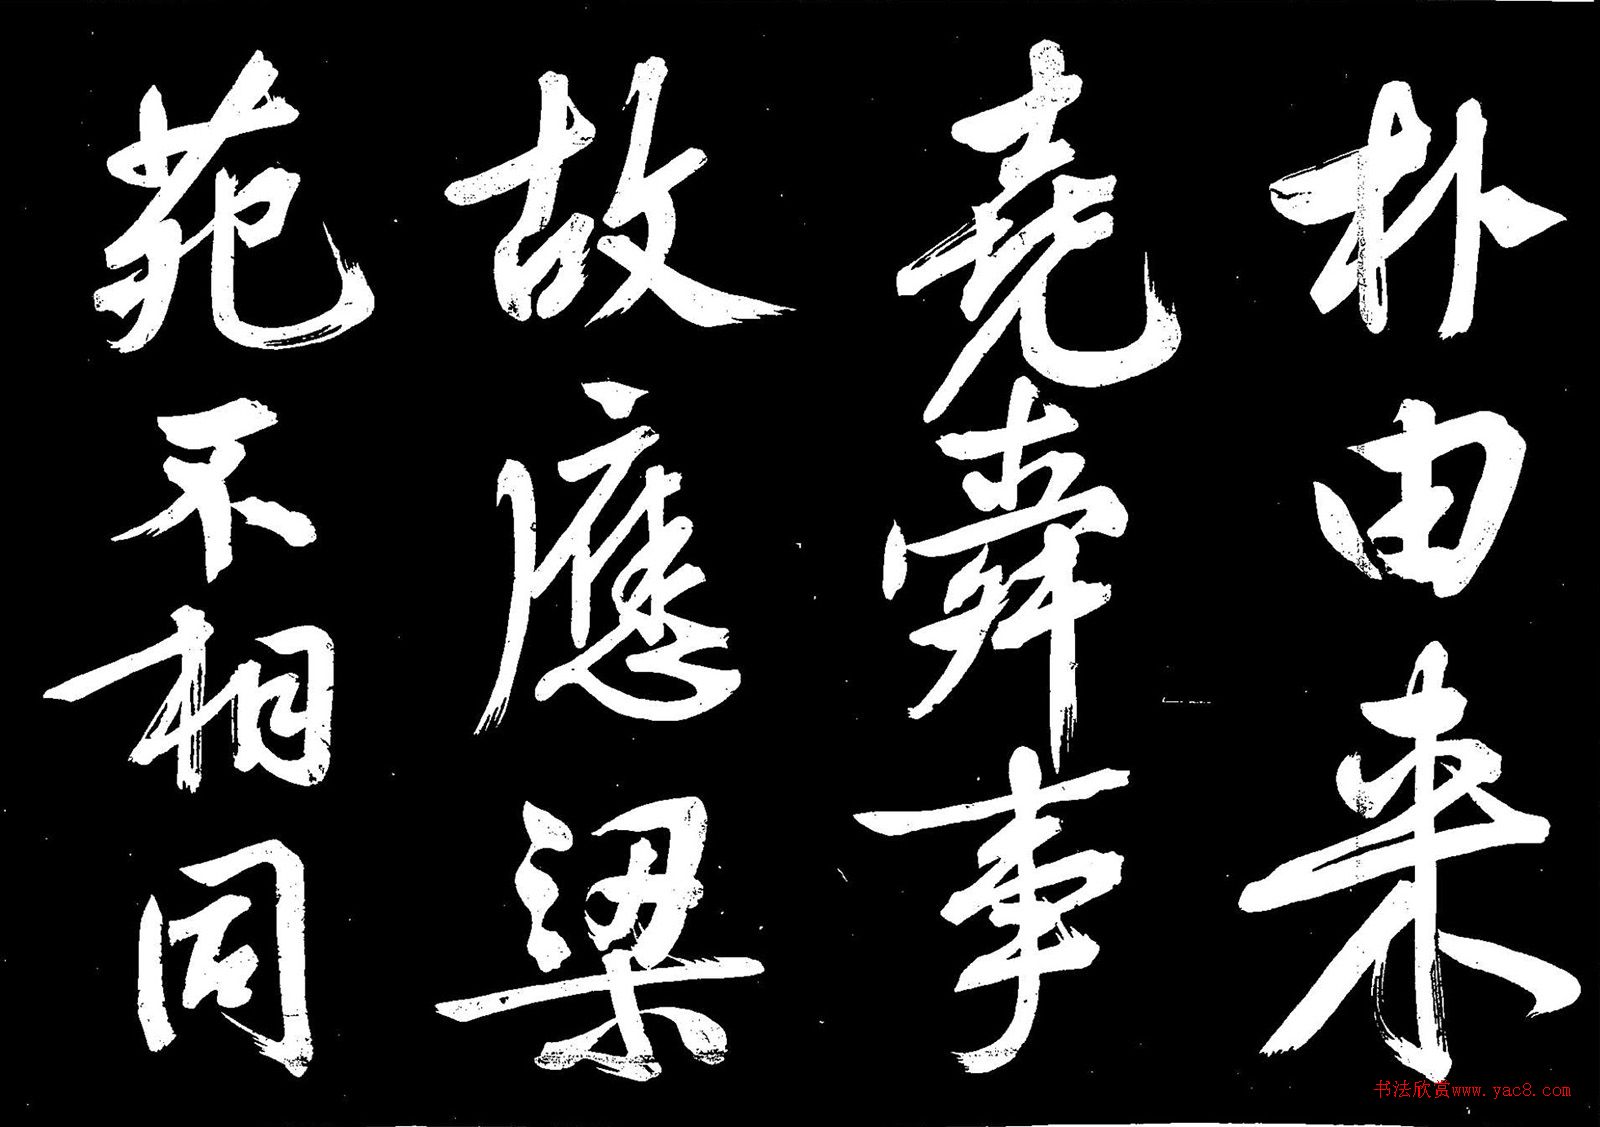 朴由来
尭舜事
故應梁
苑不相同
书法欣赏www.yac8.com